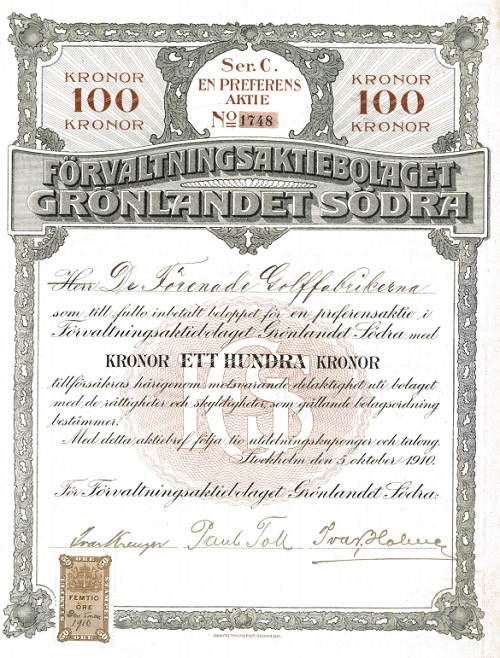 Ser. C.
EN PREFERENS
AKTIE
No 1748
KRONOR
100
KRONOR
KRONOR
100
KRONOR
FÖRVALTNINGSAKTIEBOLAGET
GRÖNLANDET SÖDRA
Herr De Förenade Golffabrikerna
som till fullo inbetalt beloppet för en preferensaktie i
Förvaltningsaktiebolaget Grönlandet Södra med
KRONOR ETT HUNDRA KRONOR
tillförsäkras härigenom motsvarande delaktighet uti bolaget
med de rättigheter och skyldigheter, som gällande bolagsordning
bestämmer.
Med detta aktiebref följa tio utdelningskuponger och talong.
Stockholm den 5 oktober 1910.
För Förvaltningsaktiebolaget Grönlandet Södra:
Ivar Kreuger Paul Toll Ivar
50 ÖRE 50
FEMTIO
ÖRE
1910
50 ÖRE 50